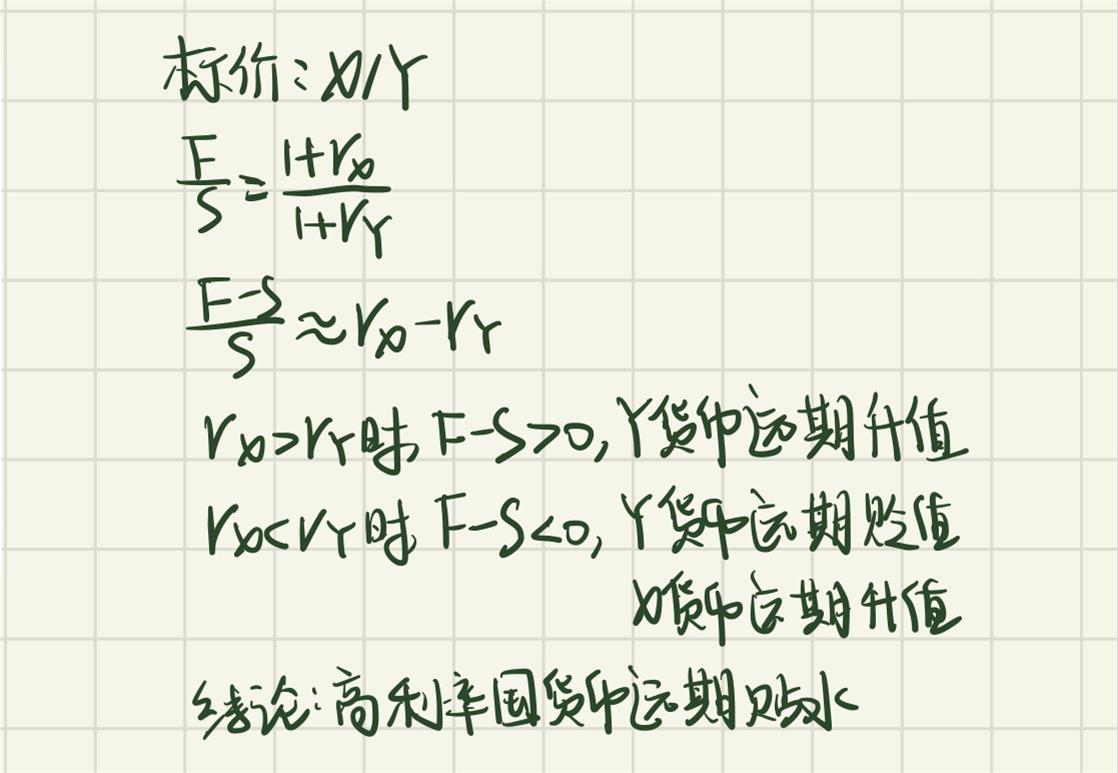 标价：X/Y
F/S = (1+r_X)/(1+r_Y)
(F-S)/S ≈ r_X - r_Y
r_X>r_Y时, F-S>0, Y货币远期升值
r_X<r_Y时, F-S<0, Y货币远期贬值
X货币远期升值
结论：高利率国货币远期贴水